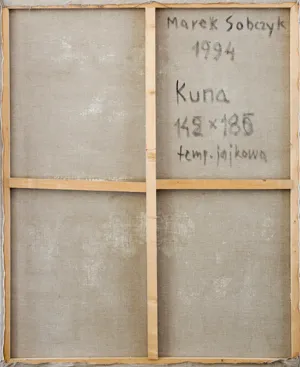 Marek Sobczyk
1994
Kuna
142 × 186
temp. jajkowa